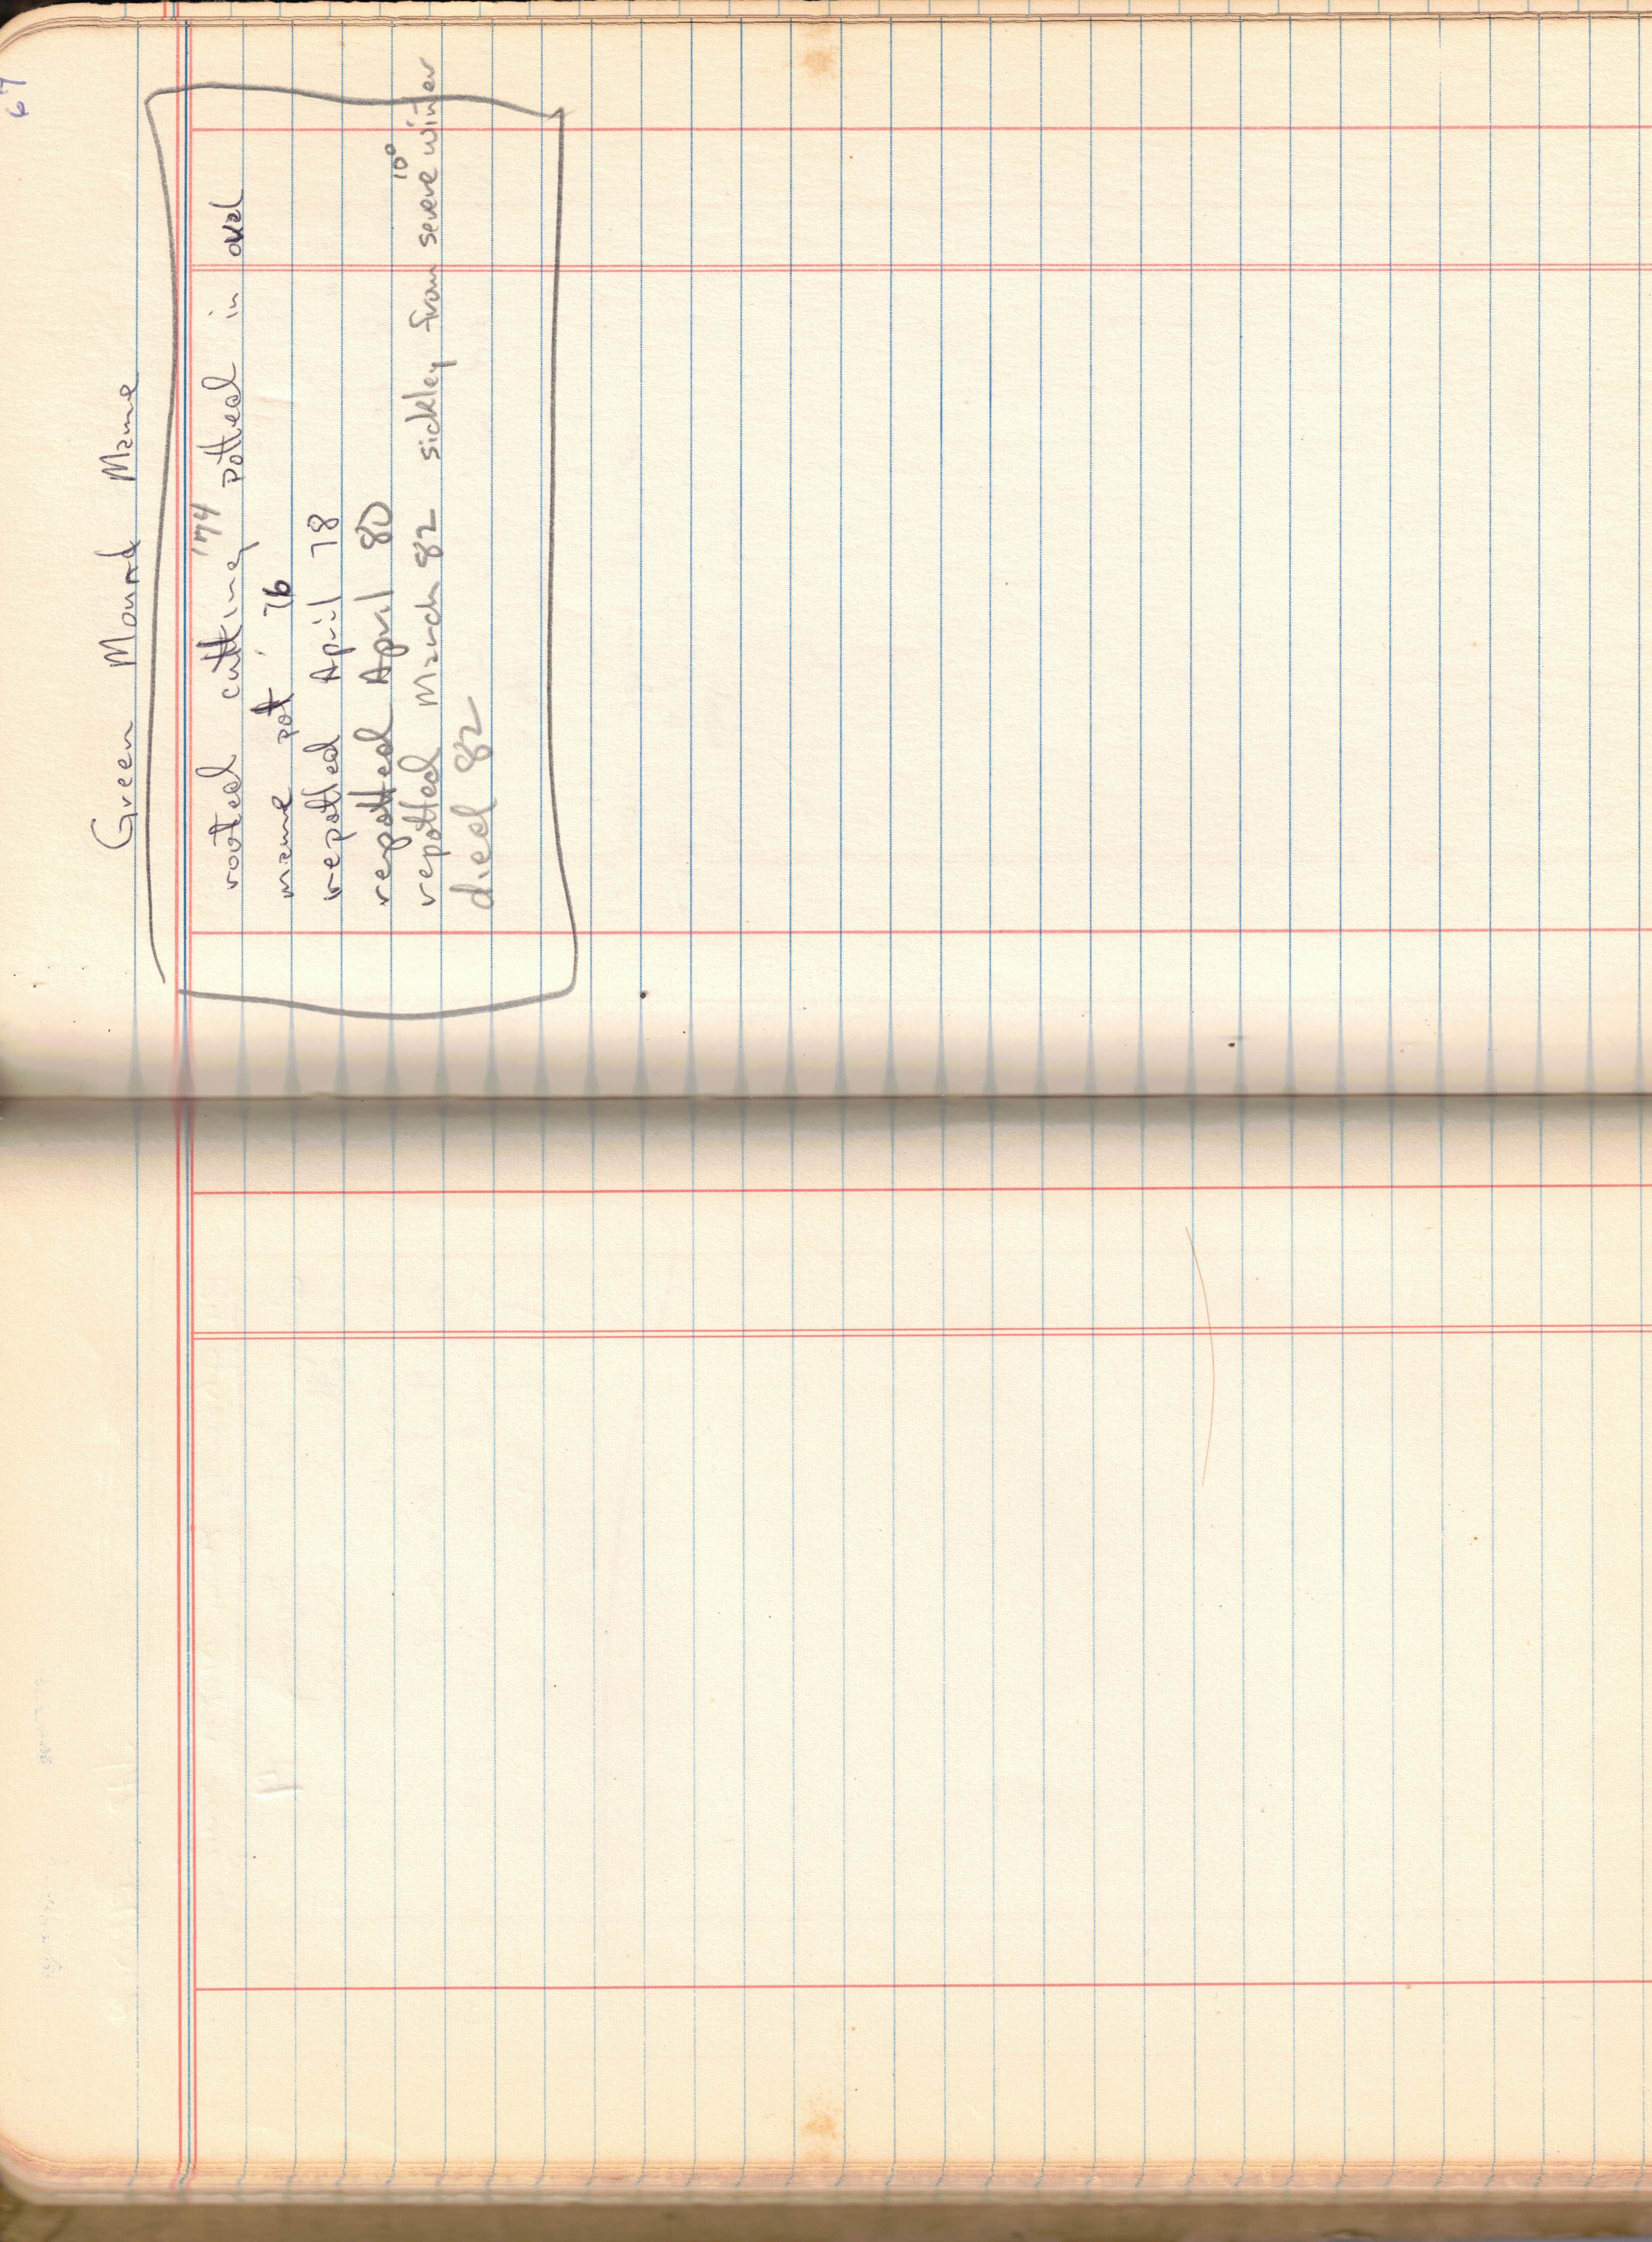 67
Green Mound Mame
rooted cutting '74 potted in oval
mame pot '76
repotted April 78
repotted April 80
repotted March 82 sickley from severe 10° winter
died 82